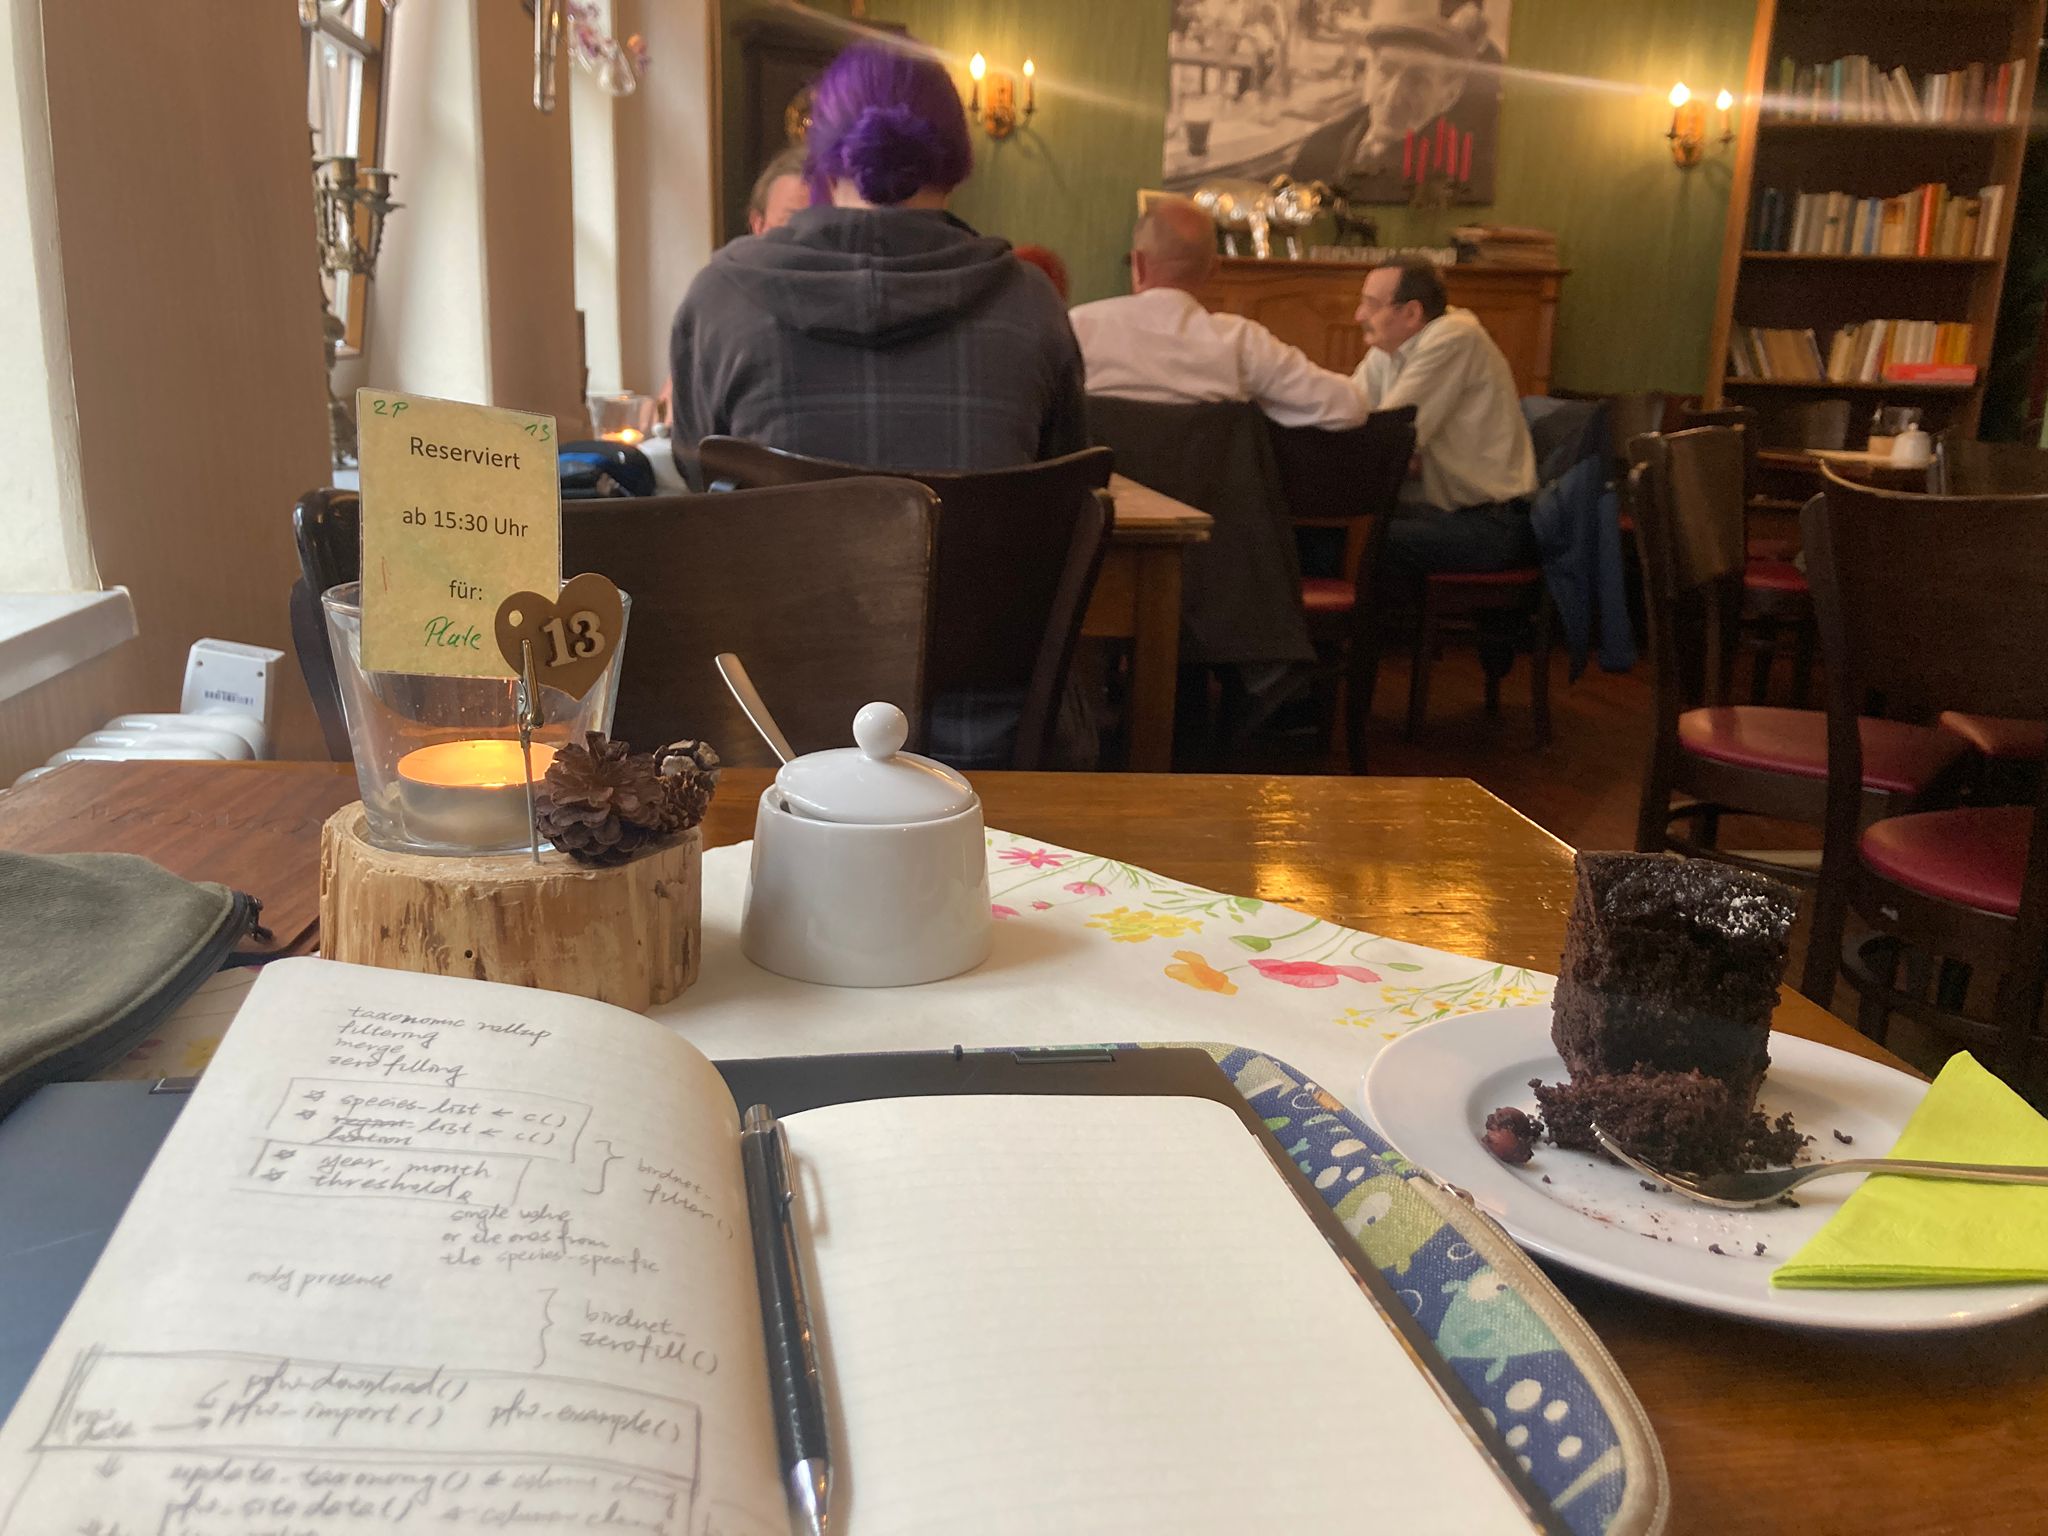 2P
13
Reserviert
ab 15:30 Uhr
für:
13
taxonomic rollup
filtering
merge
zero filling
species-list ← c()
list ← c()
location
year, month
threshold
birdnet-
filter()
single value
or the ones from
the species-specific
only presence
birdnet-
zerofill()
pfw-download()
pfw-import() pfw-example()
raw
update-taxonomy() ← column change
pfw-sitedata() ← column change